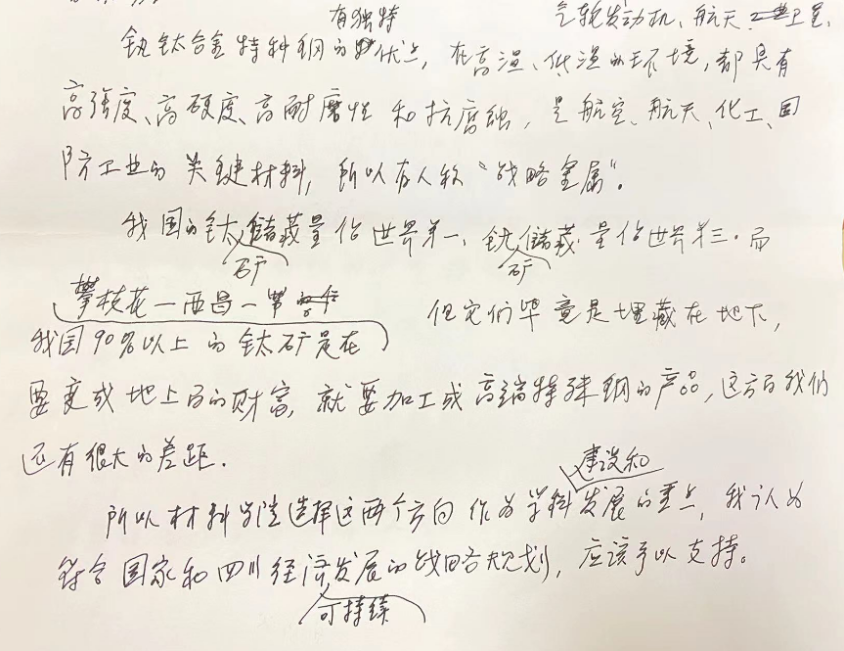 有独特
气轮发动机、航天、卫星、
钒钛合金特种钢的优点，在高温、低温的环境，都具有
高强度、高硬度、高耐磨性和抗腐蚀，是航空、航天、化工、国
防工业的关键材料，所以有人称“战略金属”。
我国的钛储藏量占世界第一、钒储藏量占世界第三。而
矿 矿
攀枝花一西昌一带
我国90%以上的钛矿是在 但它们毕竟是埋藏在地下，
要变成地上的财富，就要加工成高端特殊钢的产品，这方面我们
还有很大的差距。
建设和
所以材料学院选择这两个方向作为学科发展的重点，我认为
符合国家和四川经济发展的战略规划，应该予以支持。
可持续